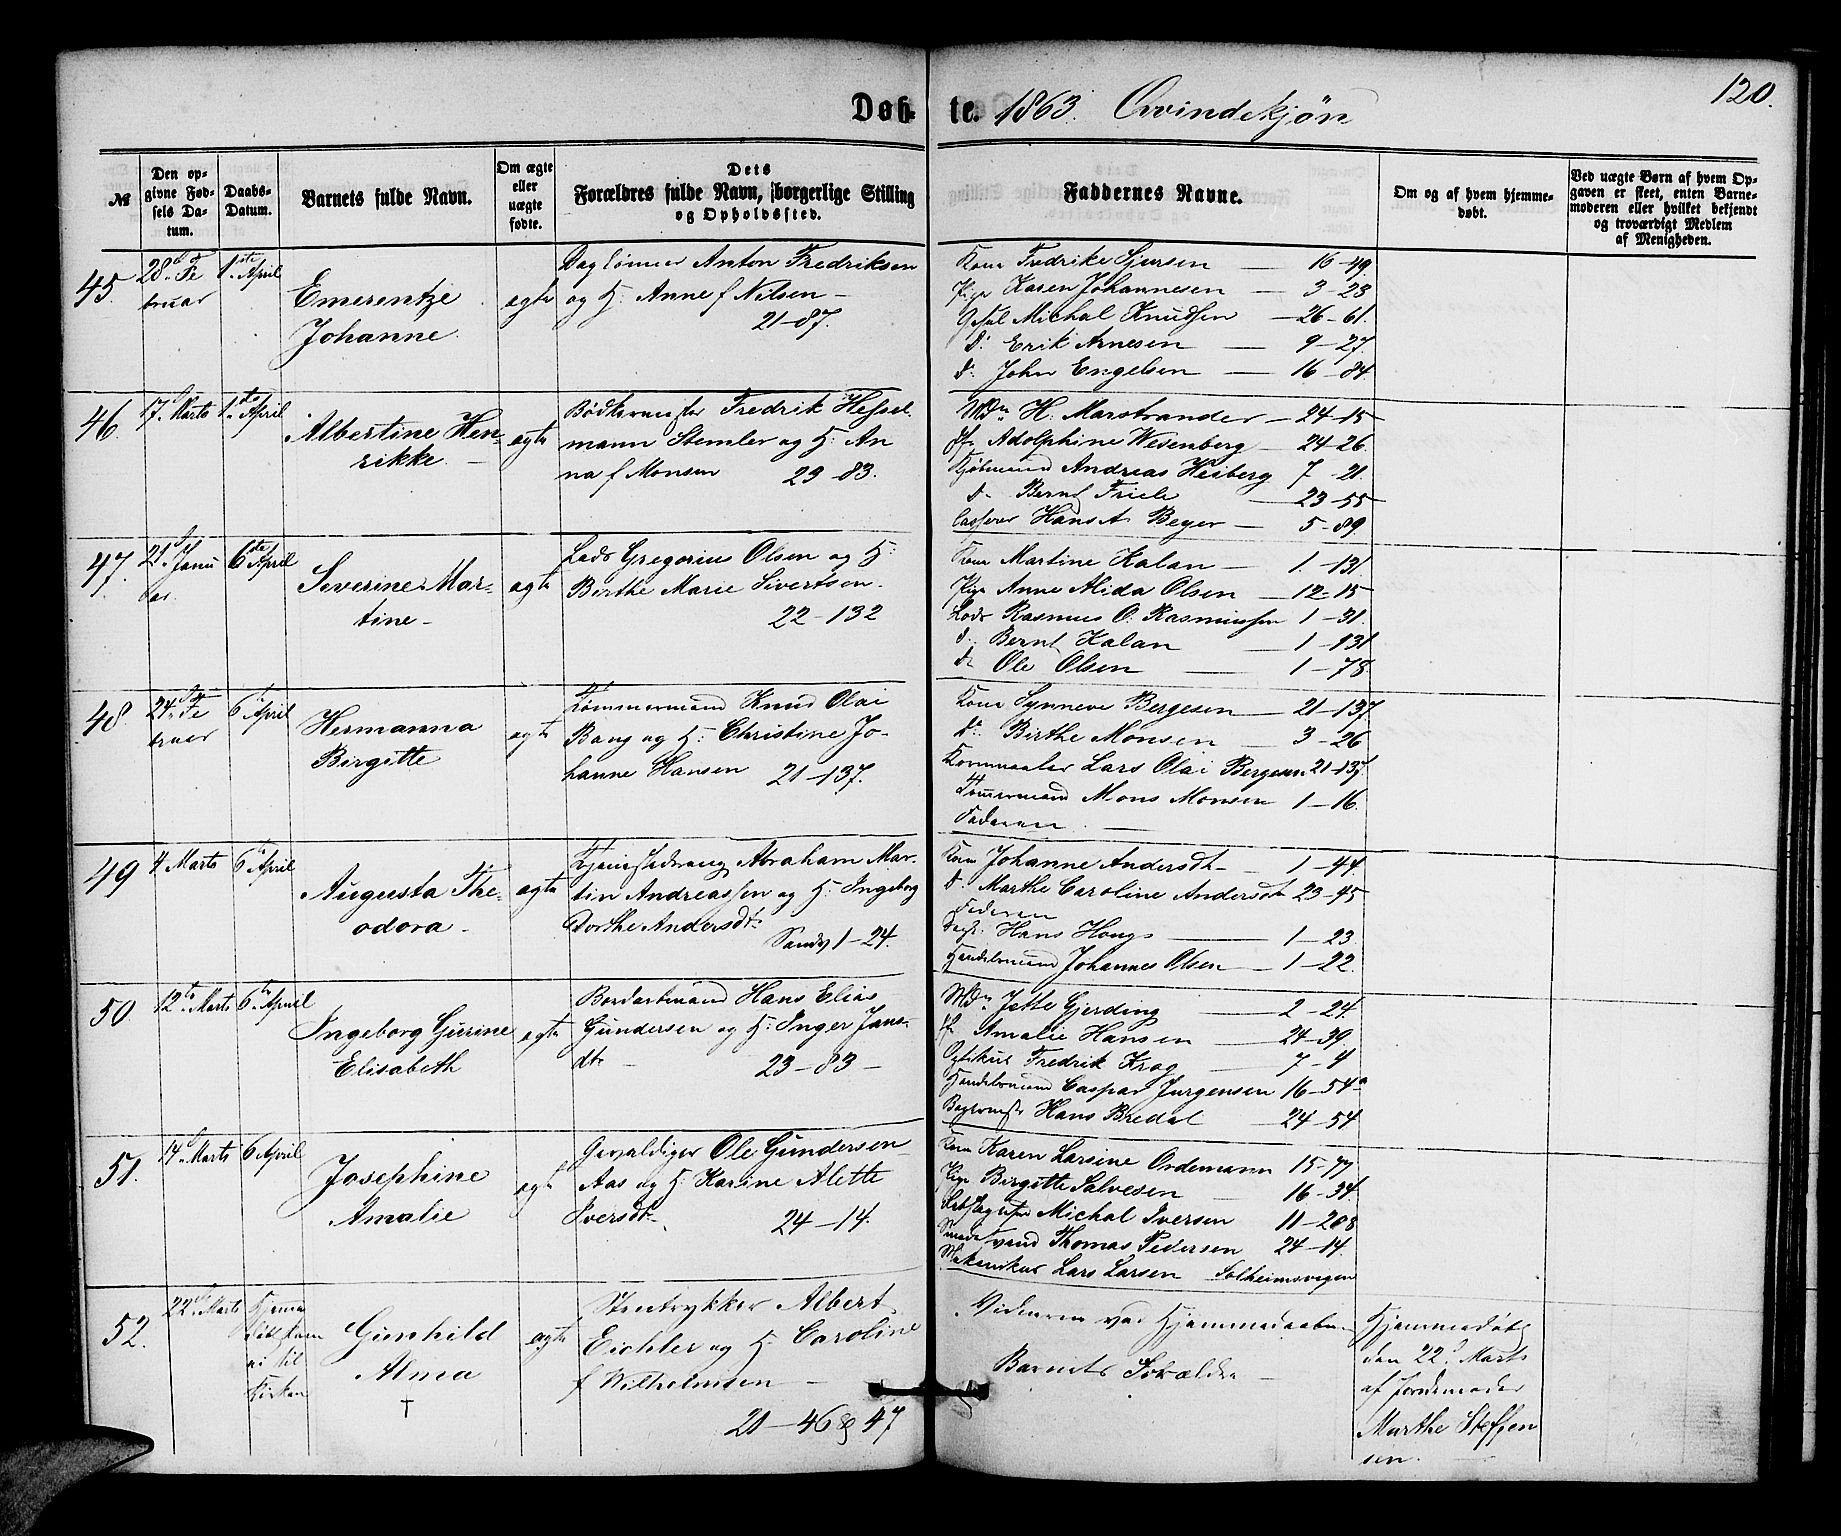 Døb-te. 1863. Qvindekjøn 120.
№
Den opgivne Fødsels Datum.
Daabs-Datum.
Barnets fulde Navn.
Om ægte eller uægte fødte.
Dets Forældres fulde Navn, borgerlige Stilling og Opholdssted.
Faddernes Navne.
Om og af hvem hjemmedøbt.
Ved uægte Børn af hvem Opgaven er skeet, enten Barnemoderen eller hvilket bekjendt og troværdigt Medlem af Menigheden.
45. 28 Fe
bruar
1ste April
Emerentze
Johanne
ægte
Daglønner Anton Fredriksen
og H: Anne f Nilsen
21-87.
Kone Fredrike Sjursen 16-49
Pige Karen Johannesen 3-23
Michal Knudsen 26-61.
D: Erik Arnesen 9-27
D: John Engelsen 16-84
46. 17 Marts
1ste April
Albertine Hen-
rikke
ægte
Bødkermester Fredrik Hessel-
mann Stemler og H: An
na f Monsen 23-83.
Md H. Marstrander 24-15
Jfr Adolphine Wesenberg 24-26
Kjøbmand Andreas Heiberg 7-21
D: Bernt Friele 23-55
Casserer Hans A Beyer 5-89
47. 21 Janu
ar
6te April
Severine Mar-
tine
ægte
Lods Gregorius Olsen og H:
Birthe Marie Sivertsen
22-132
Kone Martine Kalan 1-131
Pige Anne Alida Olsen 12-15
Lods Rasmus O. Rasmussen 1-31.
D: Bernt Kalan 1-131
D: Ole Olsen 1-78
48. 24 Fe
bruar
6 April
Hermanna
Birgitte
ægte
Tømmermand Knud Olai
Bang og H: Christine Jo-
hanne Hansen 21-137.
Kone Synneve Bergesen 21-137
D: Birthe Monsen 3-26
Kornmaaler Lars Olai Bergesen 21-137
Tømmermand Mons Monsen 1-16.
Faderen
49 4 Marts
6 April
Augusta The-
odora
ægte
Abraham Mar-
tin Andreassen og H: Ingeborg
Dorthe Andersdt:
Sandv 1-24.
Kone Johanne Andersdt 1-44
D. Marthe Caroline Andersdt 23-45
Faderen
Hans Haugs 1-23
Handelsmand Johannes Olsen 1-22.
50. 12te Marts
6te April
Ingeborg Gurine
Elisabeth
ægte
Hans Elias
Gundersen og H: Inger Jans-
dtr 23-83
Md Jette Gjerding 2-24.
Jfr Amalie Hansen 24-39
Optikus Fredrik Krag 7-4
Handelsmand Caspar Jurgensen 16-54a
Hans Bredal 24-54
51. 14 Marts
6 April
Josephine
Amalie
ægte
Gevaldiger Ole Gundersen
Aas og H: Karine Alette
Iversdt
24-14.
Kone Karen Larsine Ordemann 15-77
Pige Birgitte Salvesen 16-34
Michal Iversen 11-208
Thomas Pedersen 24-14.
Mekanikus Lars Larsen Solheimsvigen
52. 22 Marts
Hjemme
døbt kom
ei til
Kirken
Gunhild
Alma
†
ægte
Stentrykker Albert
Eichler og H: Caroline
f Wilhelmsen
21-46 & 47
Vidneren ved Hjemmedaaben
Barnets Forældre
Hjemmedøbt
den 22 Marts
af Jordemoder
Marthe Steffen
sen.